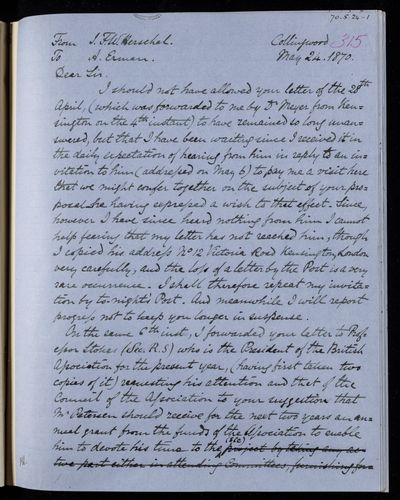 70.5.24-1
From J.F.W. Herschel. Collingwood 315
To A. Erman. May 24. 1870.
Dear Sir.
I should not have allowed your letter of the 28th
April, (which was forwarded to me by Dr Meyer from Ken-
sington on the 4th instant) to have remained so long unan-
swered, but that I have been waiting since I received it in
the daily expectation of hearing from him in reply to an in-
vitation to him (addressed on May 6) to pay me a visit here
that we might confer together on the subject of your pro-
posal he having expressed a wish to that effect. Since,
however I have since heard nothing from him I cannot
help fearing that my letter has not reached him, though
I copied his address No 12 Victoria Road Kensington, London
very carefully, and the loss of a letter by the Post is a very
rare occurrence. I shall therefore repeat my invita-
tion by to-night's Post. And meanwhile I will report
progress not to keep you longer in suspense.
On the same 6th inst, I forwarded your letter to Prof-
essor Stokes (Sec. R.S) who is the President of the British
Association for the present year, (having first taken two
copies of it) requesting his attention and that of the
Council of the Association to your suggestion that
Mr Petersen should receive for the next two years an an-
nual grant from the funds of the Association to enable
him to devote his time to the (sic) project by taking any ac-
tive part either in attending Committees, furnishing for-